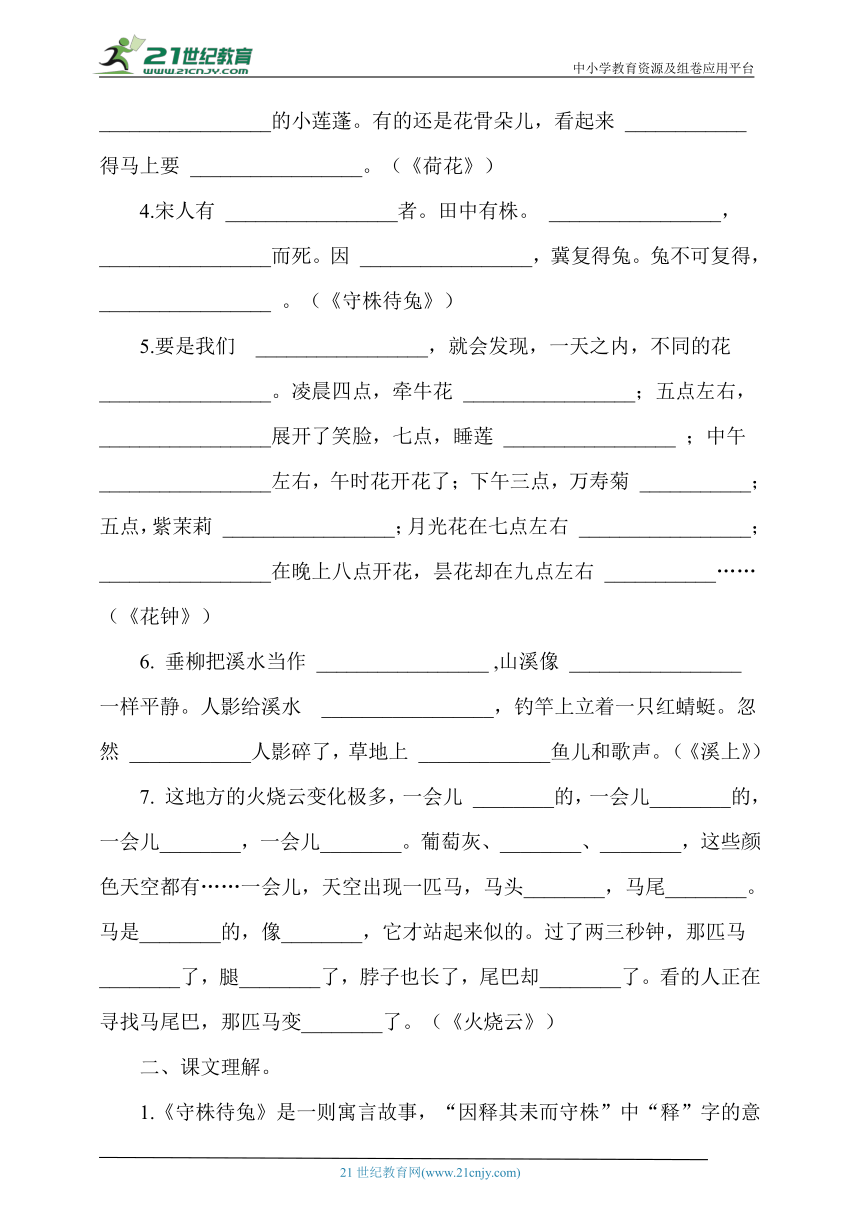 21世纪教育
WWW.21CNJY.COM
中小学教育资源及组卷应用平台
_________________的小莲蓬。有的还是花骨朵儿，看起来 ____________
得马上要 _________________。（《荷花》）
4.宋人有 _________________者。田中有株。 _________________，
_________________而死。因 _________________，冀复得兔。兔不可复得，
_________________ 。（《守株待兔》）
5.要是我们 _________________，就会发现，一天之内，不同的花
_________________。凌晨四点，牵牛花 _________________；五点左右，
_________________展开了笑脸，七点，睡莲 _________________ ；中午
_________________左右，午时花开花了；下午三点，万寿菊 ___________；
五点，紫茉莉 _________________；月光花在七点左右 _________________；
_________________在晚上八点开花，昙花却在九点左右 ___________……
（《花钟》）
6. 垂柳把溪水当作 _________________ ,山溪像 _________________
一样平静。人影给溪水 _________________，钓竿上立着一只红蜻蜓。忽
然 ____________人影碎了，草地上 _____________鱼儿和歌声。（《溪上》）
7. 这地方的火烧云变化极多，一会儿 ________的，一会儿________的，
一会儿________，一会儿________。葡萄灰、________、________，这些颜
色天空都有……一会儿，天空出现一匹马，马头________，马尾________。
马是________的，像________，它才站起来似的。过了两三秒钟，那匹马
________了，腿________了，脖子也长了，尾巴却________了。看的人正在
寻找马尾巴，那匹马变________了。（《火烧云》）
二、课文理解。
1.《守株待兔》是一则寓言故事，“因释其耒而守株”中“释”字的意
21世纪教育网(www.21cnjy.com)